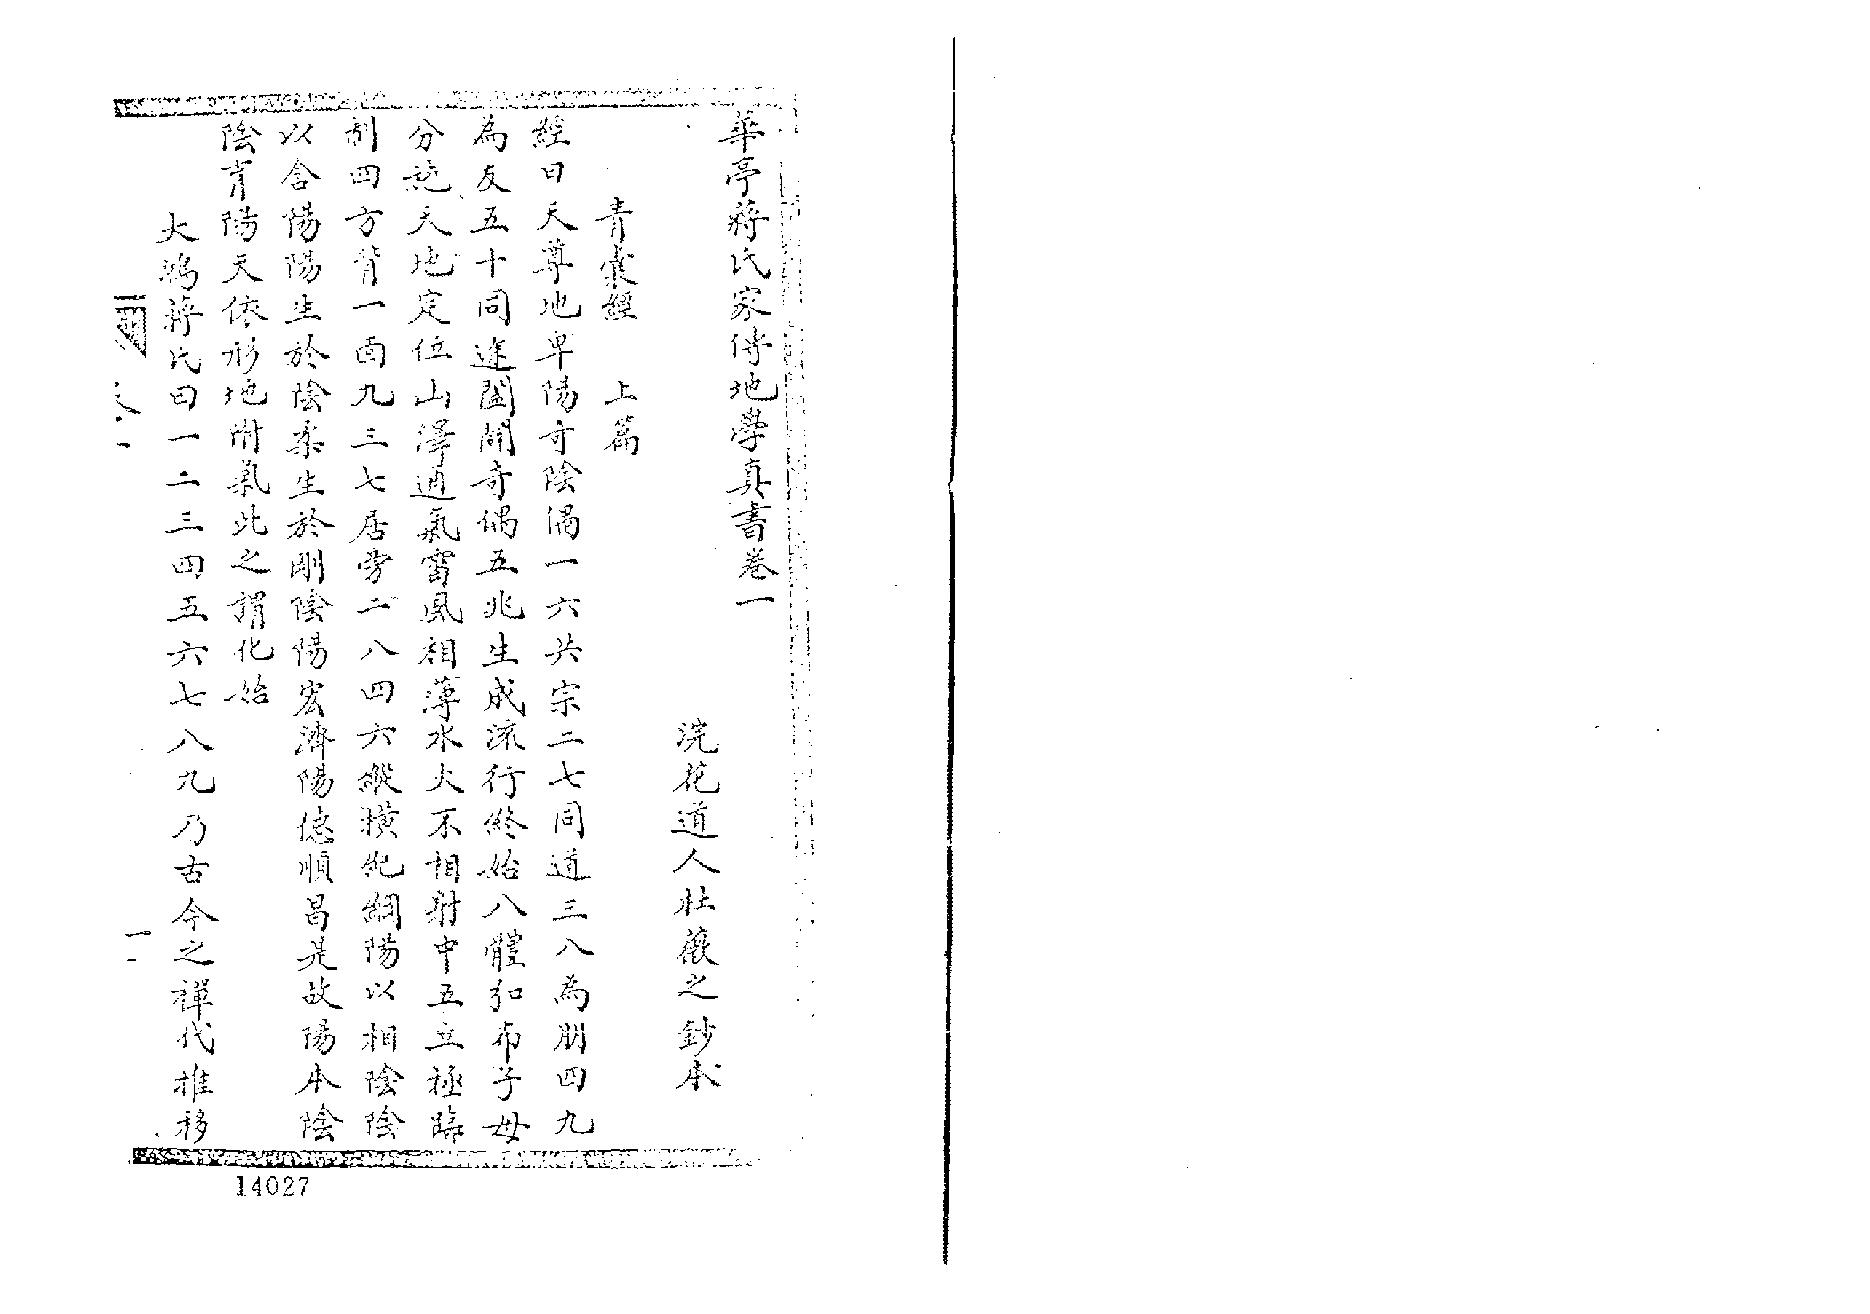 華亭蔣氏家傳地學真書卷一
浣花道人壯薇之鈔本
青囊經　上篇
經曰天尊地卑陽奇陰偶一六共宗二七同道三八為朋四九
為友五十同途闔闢奇偶五兆生成流行終始八體弘布子母
分施天地定位山澤通氣雷風相薄水火不相射中五立極臨
制四方背一面九三七居旁二八四六縱橫紀綱陽以相陰陰
以含陽陽生於陰柔生於剛陰陽宏濟陽德順昌是故陽本陰
陰育陽天依形地附氣此之謂化始
大鴻蔣氏曰一二三四五六七八九乃古今之禪代推移
卷一
一
14027